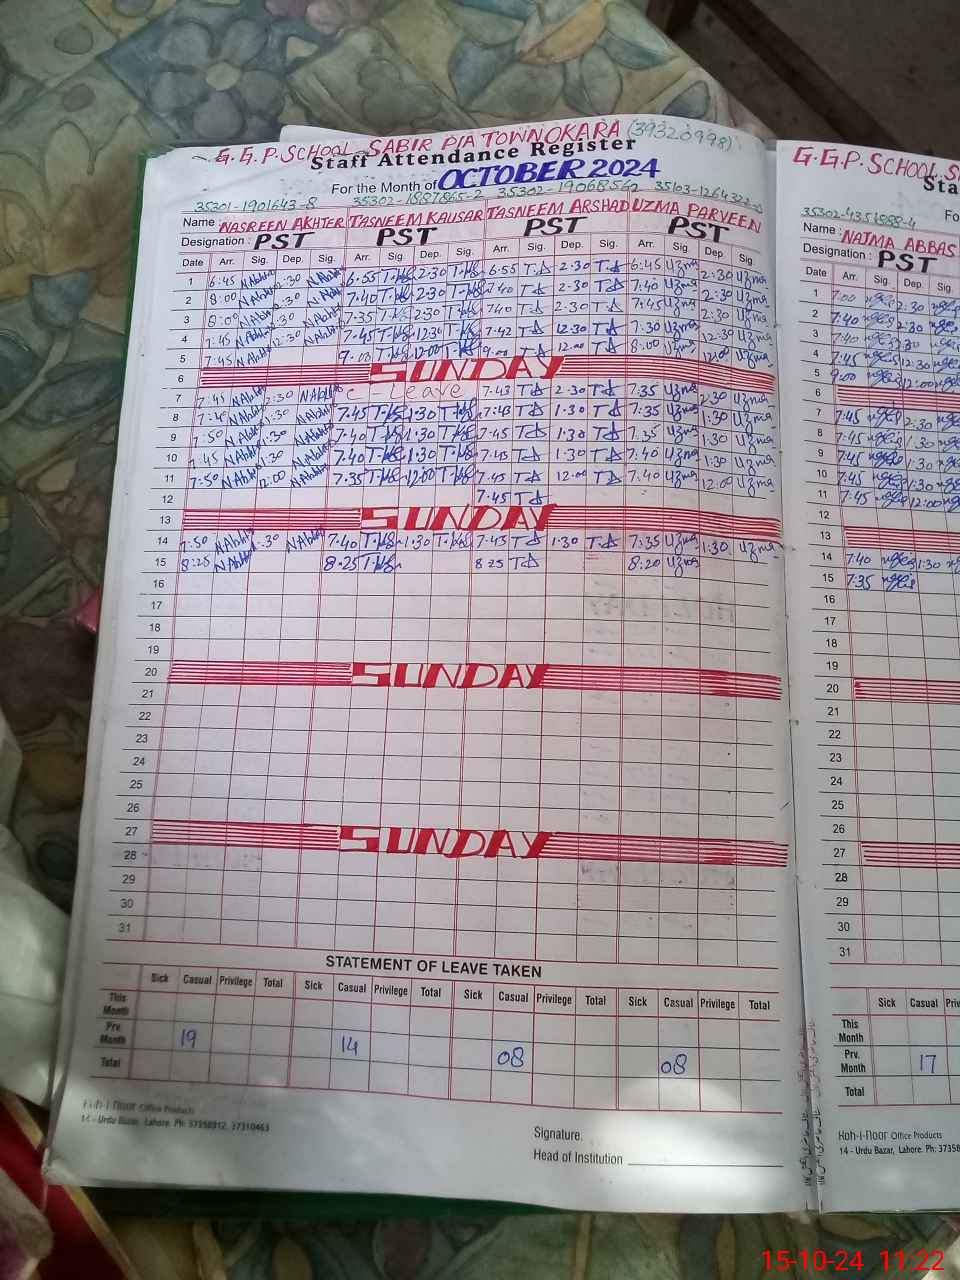 G.G.P. SCHOOL SABIR PIA TOWN OKARA (39320998)
Staff Attendance Register
For the Month of OCTOBER 2024
35301-1901643-8 35302-1887865-2 35302-1906856-2
Name NASREEN AKHTER TASNEEM KAUSAR TASNEEM ARSHAD UZMA PARVEEN
Designation : PST PST PST PST
Date Arr. Sig. Dep. Sig. Arr. Sig. Dep. Sig. Arr. Sig. Dep. Sig. Arr. Sig. Dep. Sig.
1 6:45 2:30 6:55 2:30 6:55 T.A 2:30 T.A 6:45 Uzma 2:30 Uzma
2 8:00 2:30 7:40 2:30 7:40 T.A 2:30 T.A 7:40 Uzma 2:30 Uzma
3 8:00 7:35 2:30 7:40 T.A 2:30 T.A 7:45 Uzma 2:30 Uzma
4 7:45 12:30 7:45 12:30 7:42 T.A 12:30 T.A 7:30 Uzma 12:30 Uzma
5 7:45 9:00 12:00 9:00 T.A 12:00 T.A 8:00 Uzma 12:00 Uzma
6 SUNDAY
7 7:45 2:30 C-Leave 7:43 T.A 2:30 T.A 7:35 Uzma 2:30 Uzma
8 1:30 7:45 1:30 7:43 T.A 1:30 T.A 7:35 Uzma 1:30 Uzma
9 7:50 1:30 7:40 1:30 7:45 T.A 1:30 T.A 7:35 Uzma 1:30 Uzma
10 7:45 1:30 7:40 1:30 7:43 T.A 1:30 T.A 7:40 Uzma 1:30 Uzma
11 7:50 12:00 7:35 12:00 7:45 T.A 12:00 T.A 7:40 Uzma 12:00 Uzma
12 7:45 T.A
13 SUNDAY
14 7:50 1:30 7:40 1:30 7:43 T.A 1:30 T.A 7:35 Uzma 1:30 Uzma
15 8:25 8:25 8:25 T.A 8:20 Uzma
16
17
18
19
20 SUNDAY
21
22
23
24
25
26
27 SUNDAY
28
29
30
31
STATEMENT OF LEAVE TAKEN
Sick Casual Privilege Total Sick Casual Privilege Total Sick Casual Privilege Total Sick Casual Privilege Total
This Month
Prv. Month 19 14 08 08
Total
Koh-i-Noor Office Products
14 - Urdu Bazar, Lahore. Ph: 37358912, 37310463
Signature.
Head of Institution
G.G.P. SCHOOL
Sta
35302-4351888-4
Name : NAJMA ABBAS
Designation : PST
Date Arr. Sig. Dep. Sig.
1 7:00 2:30
2 7:40 2:30
3 7:40 2:30
4 7:45 12:30
5 9:00 12:00
6
7 7:45 2:30
8 7:45 1:30
9 7:45 1:30
10 7:45 1:30
11 7:45 12:00
12
13
14 7:40 1:30
15 7:35
16
17
18
19
20
21
22
23
24
25
26
27
28
29
30
31
Sick Casual
This Month
Prv. Month 17
Total
Koh-i-Noor Office Products
14 - Urdu Bazar, Lahore. Ph: 3735
15-10-24 11:22